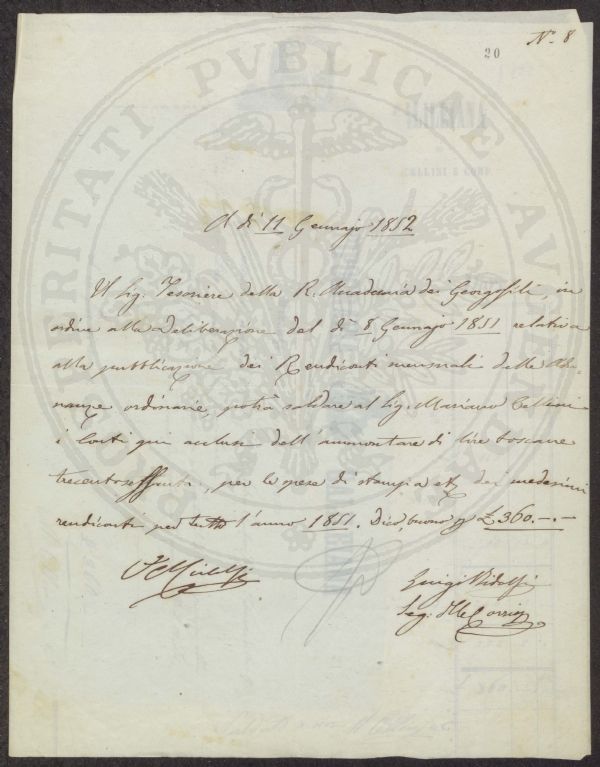 N.º 8
20
PROSPERITATI PVBLICAE AVGENDAE
CELLINI E COMP.
A dì 11 Gennajo 1852
Il Sig. Tesoriere della R. Accademia dei Georgofili, in
ordine alla deliberazione del dì 8 Gennajo 1851 relativa
alla pubblicazione dei Rendiconti mensuali delle Adu-
nanze ordinarie, potrà saldare al Sig. Mariano Cellini
i Conti qui acclusi dell'ammontare di lire toscane
trecentosessanta, per le spese di stampa etc. dei medesimi
rendiconti per tutto l'anno 1851. Dico, buono p £ 360.–.–
Luigi Ridolfi
Seg. delle Corrisp.
£ 360